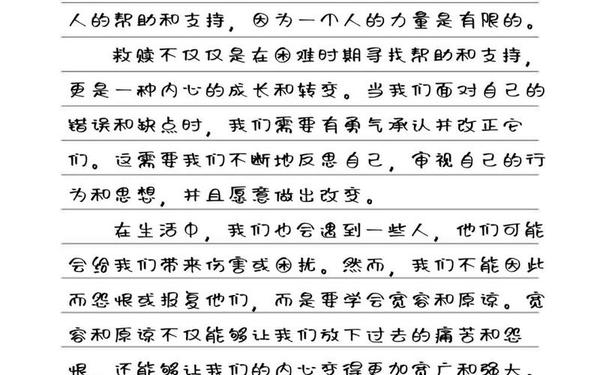 人的帮助和支持，因为一个人的力量是有限的。
救赎不仅仅是在困难时期寻找帮助和支持，
更是一种内心的成长和转变。当我们面对自己的
错误和缺点时，我们需要有勇气承认并改正它
们。这需要我们不断地反思自己，审视自己的行
为和思想，并且愿意做出改变。
在生活中，我们也会遇到一些人，他们可能
会给我们带来伤害或困扰。然而，我们不能因此
而怨恨或报复他们，而是要学会宽容和原谅。宽
容和原谅不仅能够让我们放下过去的痛苦和怨
恨，还能够让我们的内心变得更加宽广和强大。